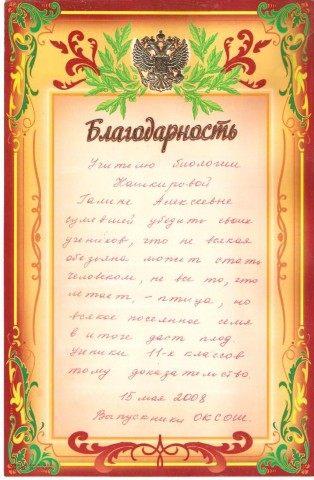 Благодарность
Учителю биологии
Кашкировой
Галине Алексеевне
сумевшей убедить своих
учеников, что не всякая
обезьяна может стать
человеком, не все то, что
летает, - птица, но
всякое посеянное семя
в итоге даст плод
Ученики 11-х классов
тому доказательство.
15 мая 2008
Выпускники ОКСОШ.